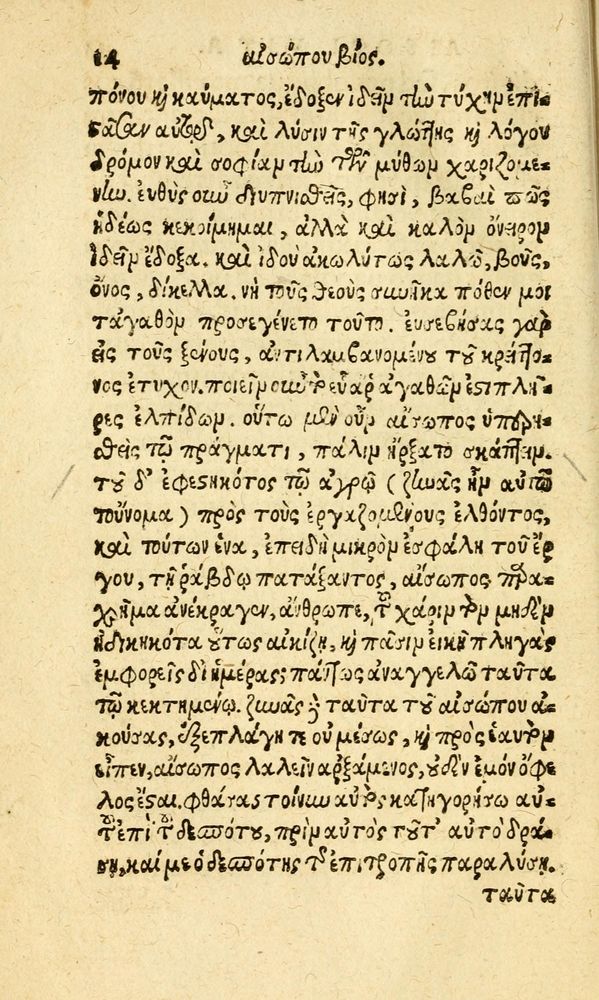 14 αἰσώπου βίος.
πόνου καὶ καύματος, ἔδοξεν ἰδεῖν τὴν τύχην ἐπι-
σᾶσαν αὐτῷ, καὶ λύσιν τῆς γλώττης καὶ λόγου
δρόμον καὶ σοφίαν τὴν τῶν μύθων χαριζομέ-
νην. εὐθὺς οὖν διυπνισθεὶς, φησὶ, βαβαὶ πῶς
ἡδέως κεκοίμημαι, ἀλλὰ καὶ καλὸν ὄνειρον
ἰδεῖν ἔδοξα. καὶ ἰδοὺ ἀκωλύτως λαλῶ, βοῦς,
ὄνος, δίκελλα. νὴ τοὺς θεοὺς συνῆκα πόθεν μοι
τἀγαθὸν προσεγένετο τοῦτο. εὐσεβήσας γὰρ
εἰς τοὺς ξένους, ἀντιλαμβανομένου τοῦ κρείττο-
νος ἔτυχον. ποιεῖν οὖν εὖ ἄρα ἀγαθῶν ἐστι πλή-
ρες ἐλπίδων. οὕτω μὲν οὖν αἴσωπος ὑπερη-
σθεὶς τῷ πράγματι, πάλιν ἤρξατο σκάπτειν.
τοῦ δ' ἐφεστηκότος τῷ ἀγρῷ (ζηνᾶς ἦν αὐτῷ
τοὔνομα) πρὸς τοὺς ἐργαζομένους ἐλθόντος,
καὶ τούτων ἕνα, ἐπειδὴ μικρὸν ἐσφάλη τοῦ ἔρ-
γου, τῇ ῥάβδῳ πατάξαντος, αἴσωπος παρα-
χρῆμα ἀνέκραγεν, ἄνθρωπε, τοῦ χάριν τὸν μηδὲν
ἠδικηκότα οὕτως αἰκίζῃ, καὶ πᾶσιν εἰκῆ πληγὰς
ἐμφορεῖς δι' ἡμέρας; πάντως ἀναγγελῶ ταῦτα
τῷ κεκτημένῳ. ζηνᾶς δὲ ταῦτα τοῦ αἰσώπου ἀ-
κούσας, ἐξεπλάγη τε οὐ μέσως, καὶ πρὸς ἑαυτὸν
εἶπεν, αἴσωπος λαλεῖν ἀρξάμενος, οὐδὲν ἐμὸν ὄφε-
λος ἔσται. φθάσας τοίνυν αὐτὸς κατηγορήσω αὐ-
τοῦ ἐπὶ τοῦ δεσπότου, πρὶν αὐτὸς τοῦτ' αὐτὸ δρά-
σῃ, καί με ὁ δεσπότης τῆς ἐπιτροπῆς παραλύσῃ.
ταῦτα